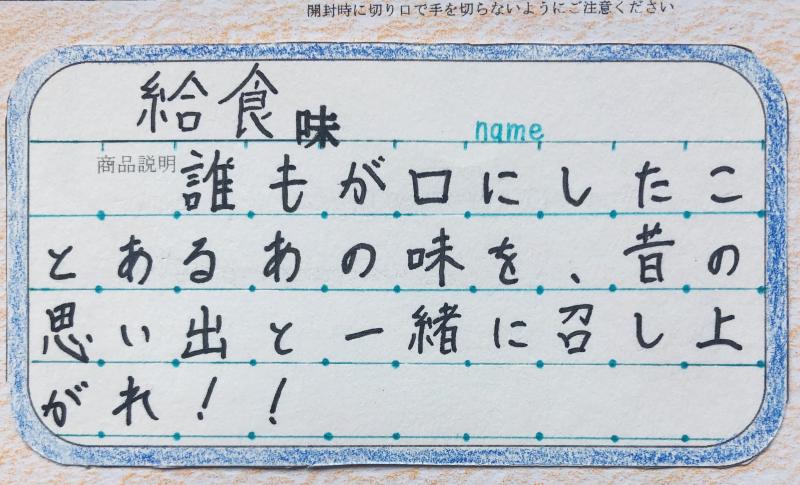 開封時に切り口で手を切らないようにご注意ください
給食味 name
商品説明 誰もが口にしたこ
とあるあの味を、昔の
思い出と一緒に召し上
がれ！！